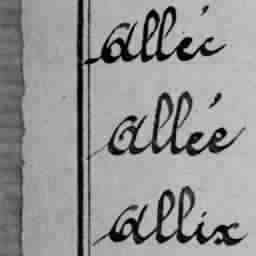 Alléc
Allée
Allix